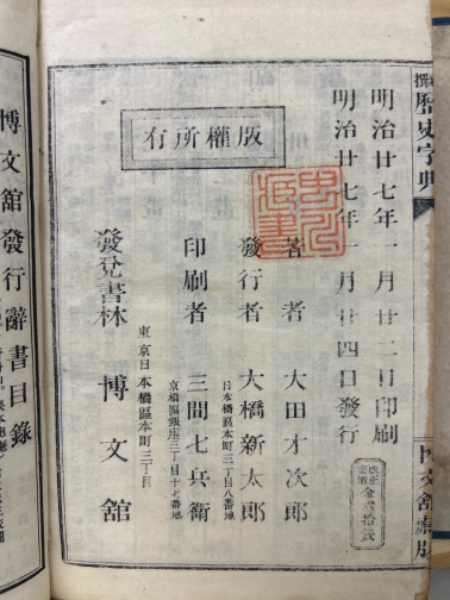 歴史字典
博文舘蔵版
明治廿七年一月廿二日印刷
明治廿七年一月廿四日發行
版權所有
著者 大田才次郎
發行者 大橋新太郎
日本橋區本町三丁目八番地
印刷者 三間七兵衛
京橋區銀座三丁目十七番地
東京日本橋區本町三丁目
發兌書林 博文舘
博文舘發行辭書目錄